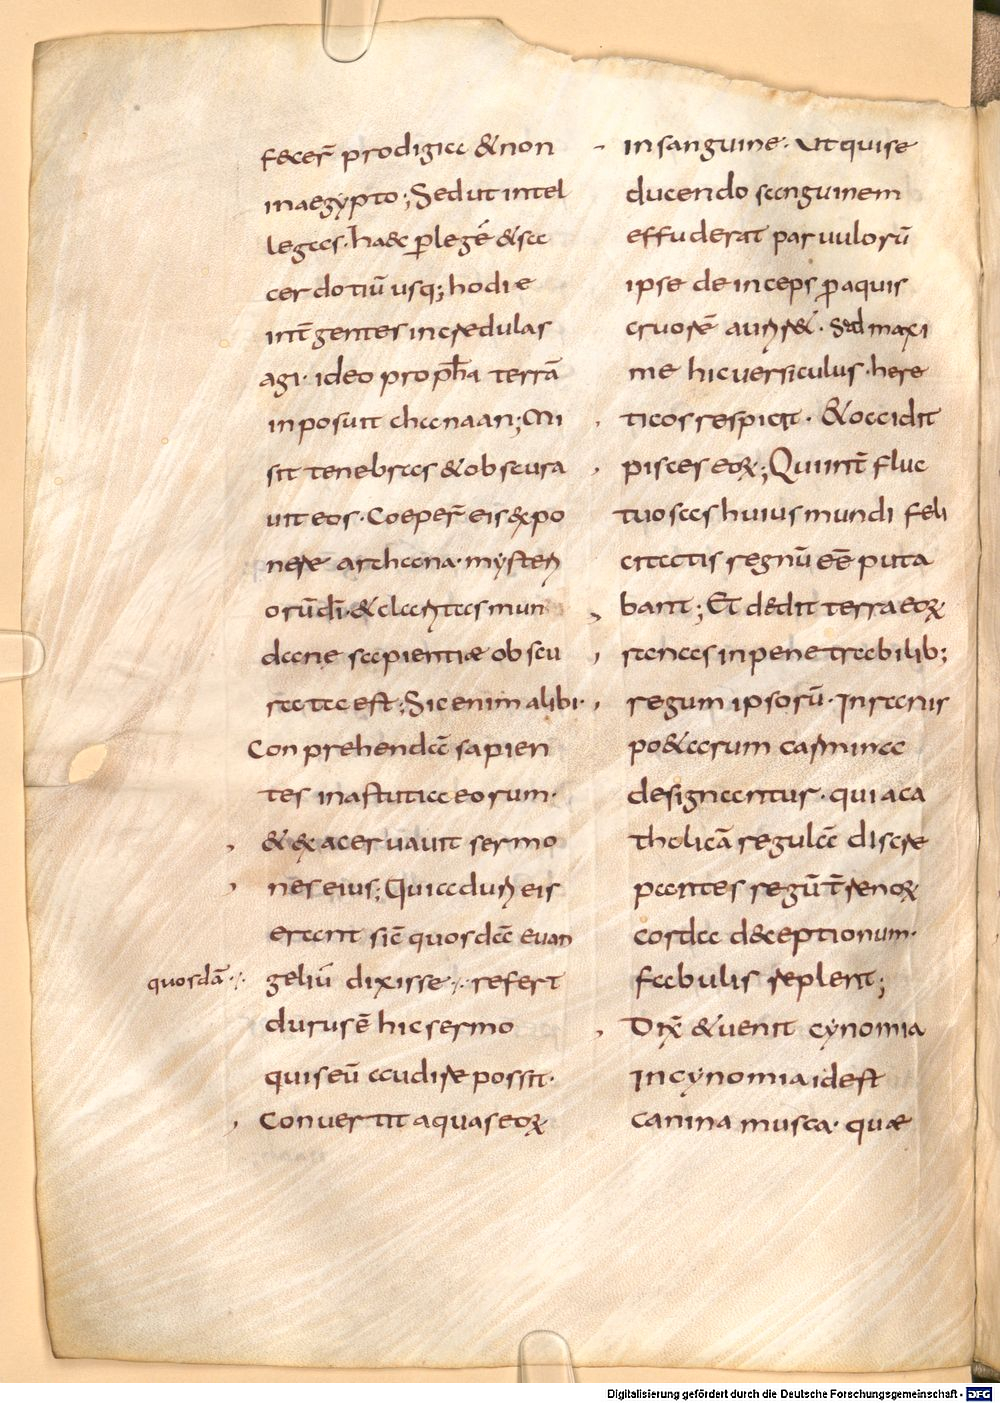 fecer̄ prodigia & non
in aegypto; Sed ut intel
legas. haec p̲ legē & sa
cerdotiū usq; hodie
int̄ gentes incredulas
agi. ideo proph̄a terrā
inposuit chanaan; Mi
sit tenebras & obscura
uit eos. Coeper̄ eis expo
nere archana. mysteri
orū dī. & claantes mun
danae sapientiae obscu
rata est; Sic enim alibi.
Conprehendā sapien
tes in astutia eorum.
& exaceruauit sermo
nes eius; Quia duri eis
erant sic̄ quosdā euan
quosdā ⁒
geliū dixisse ⁒ refert
durus ē hic sermo
quis eū audire possit.
Conuertit aquas eoꝝ
in sanguine. Ut qui se
ducendo sanguinem
effuderat paruulorū
ipse deinceps p̲ aquis
cruorē auriret. Sed maxi
me hic uersiculus. here
ticos respicit. & occidit
pisces eoꝝ; Qui int̄ fluc
tuosas huius mundi feli
citatis regnū eē puta
bant; Et dedit terra eoꝝ
ranas inpenetrabilib;
regum ipsorū. In ranis
poetarum carmina
designantur. qui a ca
tholicā regulā discre
pantes regū t̄renoꝝ
corda deceptionum.
fabulis replent;
Dix̄ & uenit cynomia
In cynomia id est
canina musca. quae
Digitalisierung gefördert durch die Deutsche Forschungsgemeinschaft - DFG